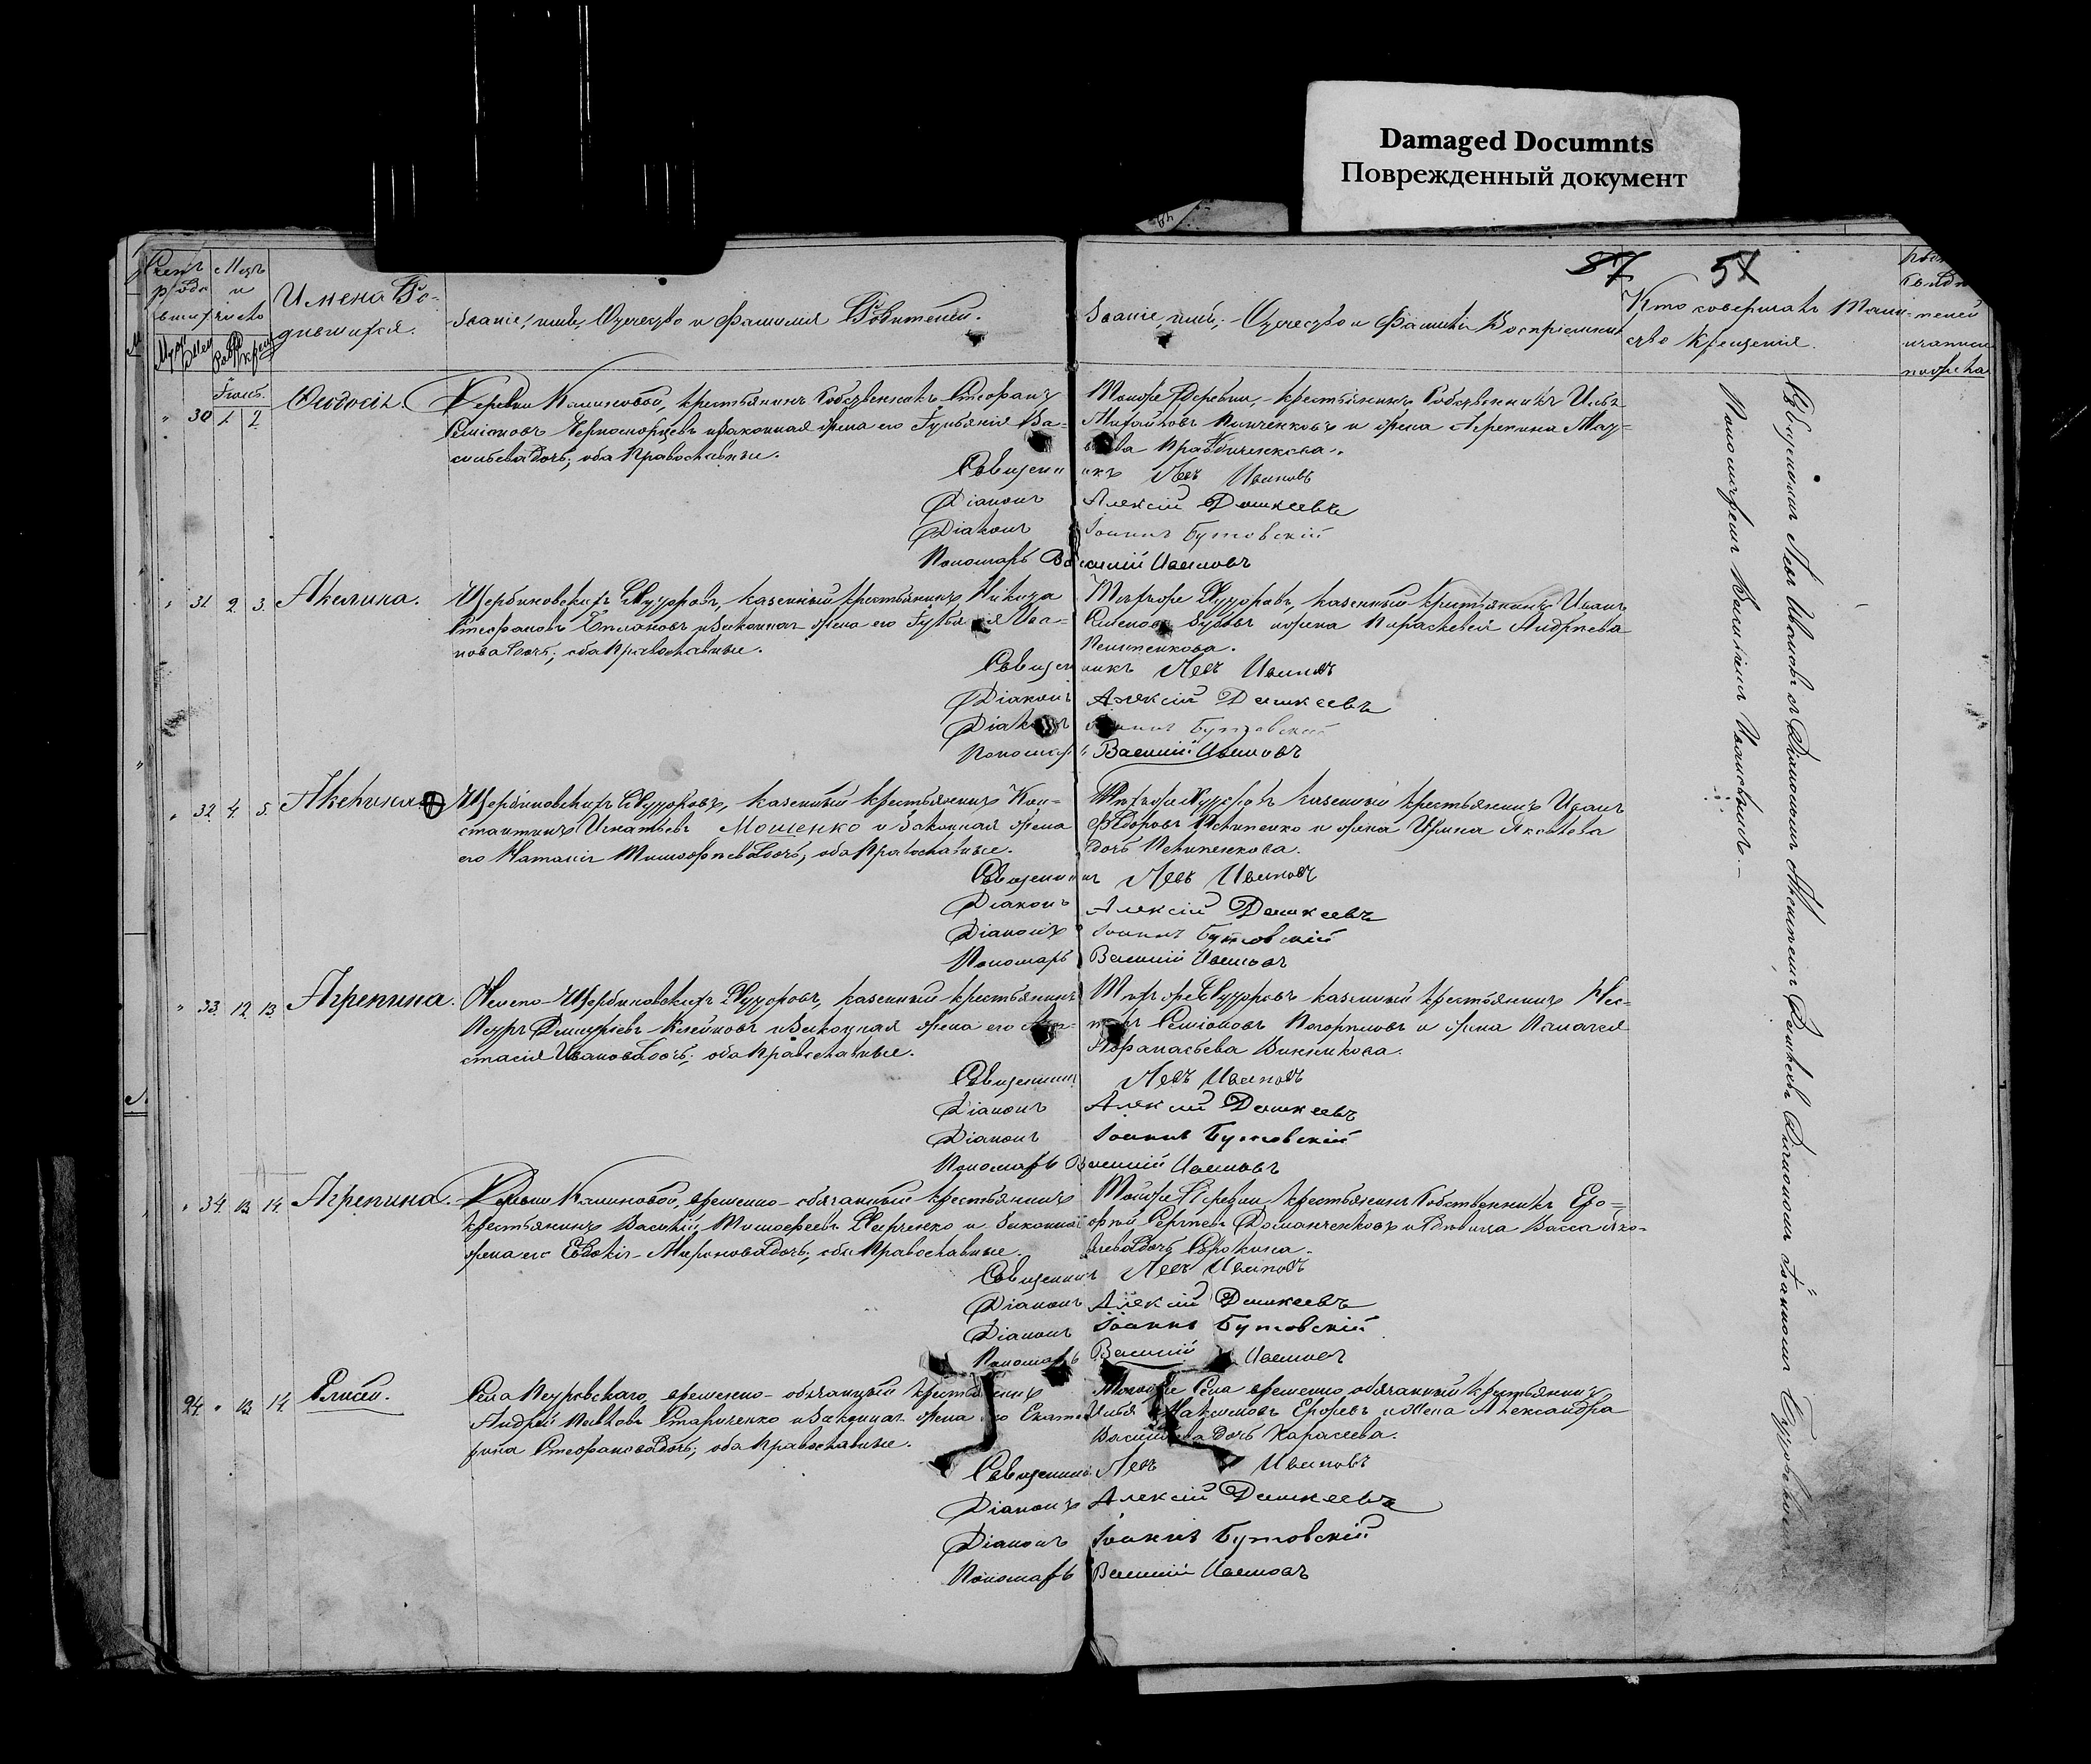 Damaged Documnts
Поврежденный документ
87 51
Имена Ро-
дившихся.
Званіе, имя, Отчество и Фамилія Родителей.
Званіе, имя, Отчество и Фамилія Воспріемник
Кто совершалъ Таин-
ство Крещенія.
Мужс Женс
Іюль.
" 30 1. 2.
Ѳеодосія.
Деревни Калиновой, крестьянинъ Собственникъ Стефанъ
Симіоновъ Черноморцевъ и законная жена его Іуліанія Ва-
сильева дочь; оба Православные.
Тойже Деревни, крестьянинъ Собственникъ Илья
Михайловъ и жена Агрепина
Священникъ Левъ Ивановъ
Діаконъ Алексій Дашкеевъ
Діаконъ Іоаннъ Бутовскій
Пономарь Василій Ивановъ
" 31. 2. 3. Акелина.
Щербиновскихъ Хуторовъ, казенный крестьянинъ Никита
Стефановъ и законная жена его Іуліанія Ива-
нова дочь; оба Православные.
Тѣхъже Хуторовъ, казенный крестьянинъ Иванъ
Семеновъ и жена Параскевія Андреева
Священникъ Левъ Ивановъ
Діаконъ Алексій Дашкеевъ
Діаконъ Іоаннъ Бутовскій
Пономарь Василій Ивановъ
" 32. 4. 5. Акелина
Щербиновскихъ Хуторовъ, казенный крестьянинъ Кон-
стантинъ Игнатьевъ Мошенко и законная жена
его Наталія Тимофѣева дочь; оба Православные.
Тѣхъже Хуторовъ казенный крестьянинъ Иванъ
Ѳедоровъ и жена Ирина Яковлева
дочь
Священникъ Левъ Ивановъ
Діаконъ Алексій Дашкеевъ
Діаконъ Іоаннъ Бутовскій
Пономарь Василій Ивановъ
" 33. 12. 13. Агрепина.
Щербиновскихъ Хуторовъ, казенный крестьянинъ
Петръ Димитріевъ Клейновъ и законная жена его Ана-
стасія Иванова дочь; оба Православные.
Тѣхъже Хуторовъ казенный крестьянинъ Нес-
торъ Симіоновъ и жена Пелагея
Аѳанасьева Винникова.
Священникъ Левъ Ивановъ
Діаконъ Алексій Дашкеевъ
Діаконъ Іоаннъ Бутовскій
Пономарь Василій Ивановъ
" 34. 13. 14. Агрепина.
Деревни Калиновой, временно-обязанный крестьянинъ
крестьянинъ Василій Тимофеевъ и законная
жена его Евдокія Миронова дочь; оба Православные.
Тойже Деревни крестьянинъ Собственникъ Еро-
фей Сергѣевъ Доманченковъ и девица Васса Яко-
влева дочь Сорокина.
Священникъ Левъ Ивановъ
Діаконъ Алексій Дашкеевъ
Діаконъ Іоаннъ Бутовскій
Пономарь Василій Ивановъ
24. " 13. 14. Елисей.
Села Петровскаго, временно-обязанный крестьянинъ
Андрей Павловъ Стариченко и законная жена его Екате-
рина Стефанова дочь; оба Православные.
Тогоже Села временно обязанный крестьянинъ
Илья Максимовъ Ерофеевъ и жена Александра
Васильева дочь Карасева.
Священникъ Левъ Ивановъ
Діаконъ Алексій Дашкеевъ
Діаконъ Іоаннъ Бутовскій
Пономарь Василій Ивановъ
Священникъ Левъ Ивановъ съ Діакономъ Алексѣемъ Дашкеевымъ Діакономъ Іоанномъ Бутовскимъ
Пономаремъ Василіемъ Ивановымъ